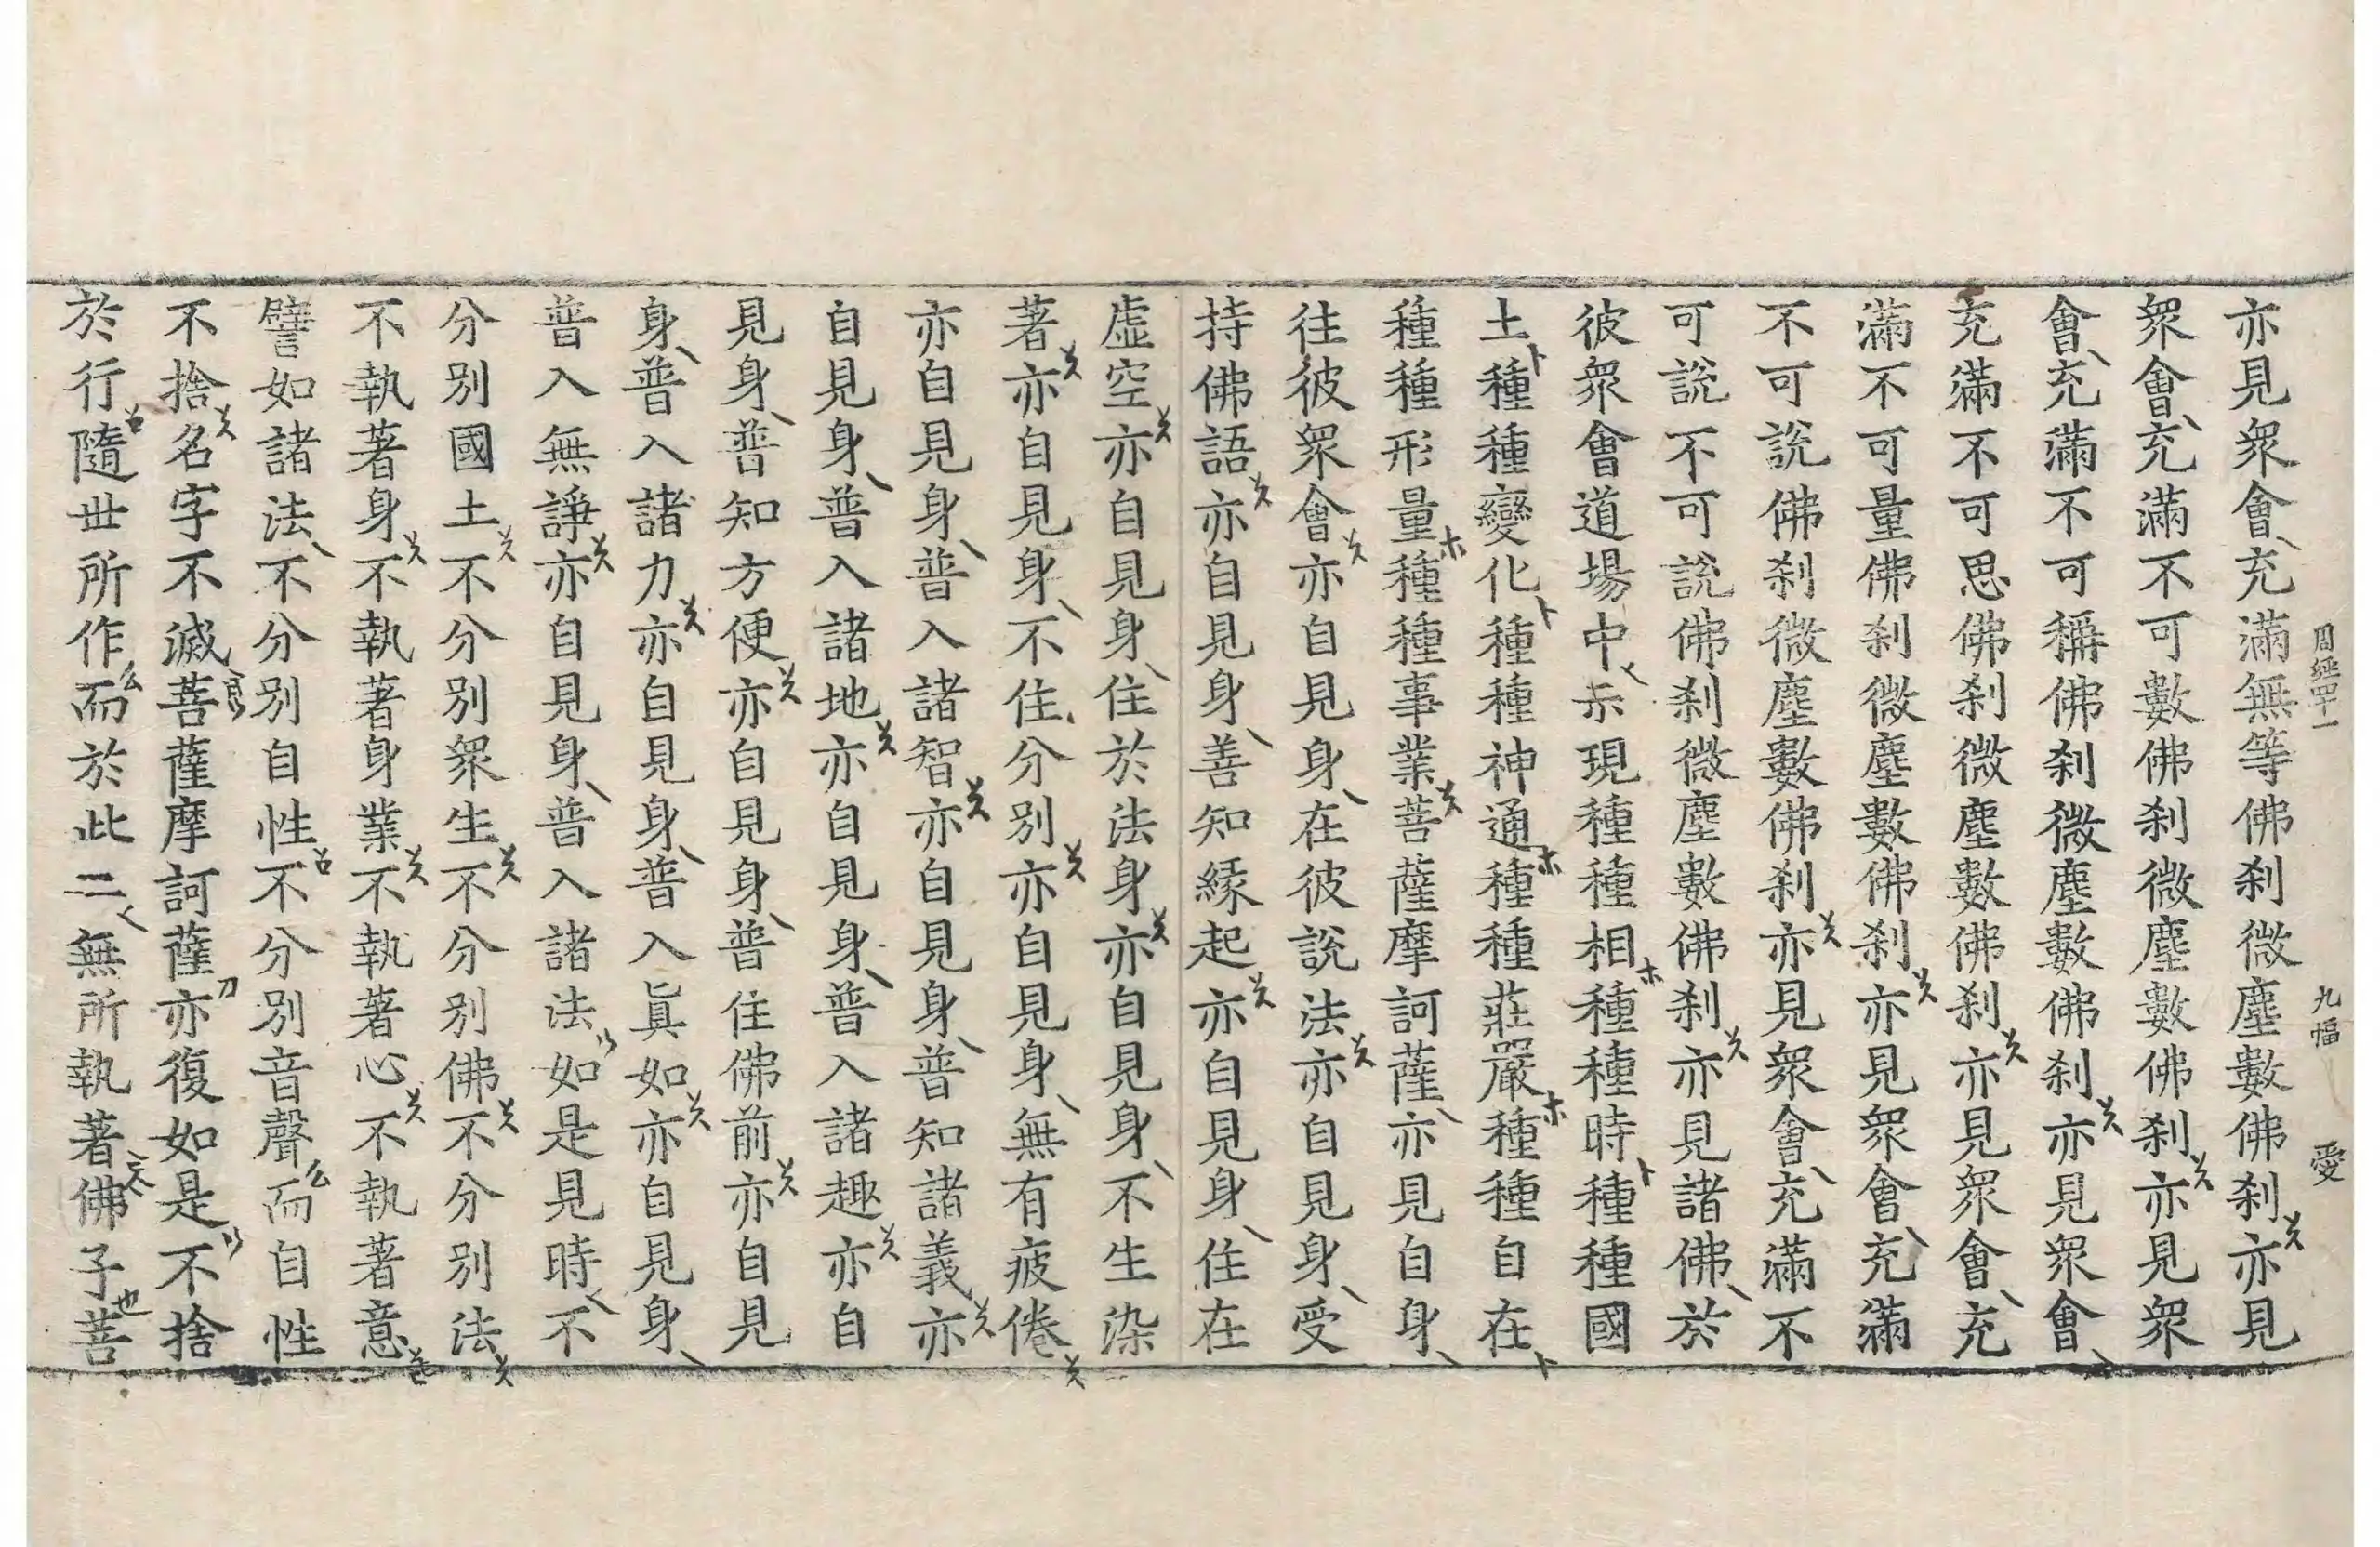 周經四十一　九幅　愛
亦見衆會充滿無等佛刹微塵數佛刹亦見
衆會充滿不可數佛刹微塵數佛刹亦見衆
會充滿不可稱佛刹微塵數佛刹亦見衆會
充滿不可思佛刹微塵數佛刹亦見衆會充
滿不可量佛刹微塵數佛刹亦見衆會充滿
不可說佛刹微塵數佛刹亦見衆會充滿不
可說不可說佛刹微塵數佛刹亦見諸佛於
彼衆會道場中示現種種相種種時種種國
土種種變化種種神通種種莊嚴種種自在
種種形量種種事業菩薩摩訶薩亦見自身
往彼衆會亦自見身在彼說法亦自見身受
持佛語亦自見身善知緣起亦自見身住在
虛空亦自見身住於法身亦自見身不生染
著亦自見身不住分別亦自見身無有疲倦
亦自見身普入諸智亦自見身普知諸義亦
自見身普入諸地亦自見身普入諸趣亦自
見身普知方便亦自見身普住佛前亦自見
身普入諸力亦自見身普入眞如亦自見身
普入無諍亦自見身普入諸法如是見時不
分別國土不分別衆生不分別佛不分別法
不執著身不執著身業不執著心不執著意
譬如諸法不分別自性不分別音聲而自性
不捨名字不滅菩薩摩訶薩亦復如是不捨
於行隨世所作而於此二無所執著佛子菩